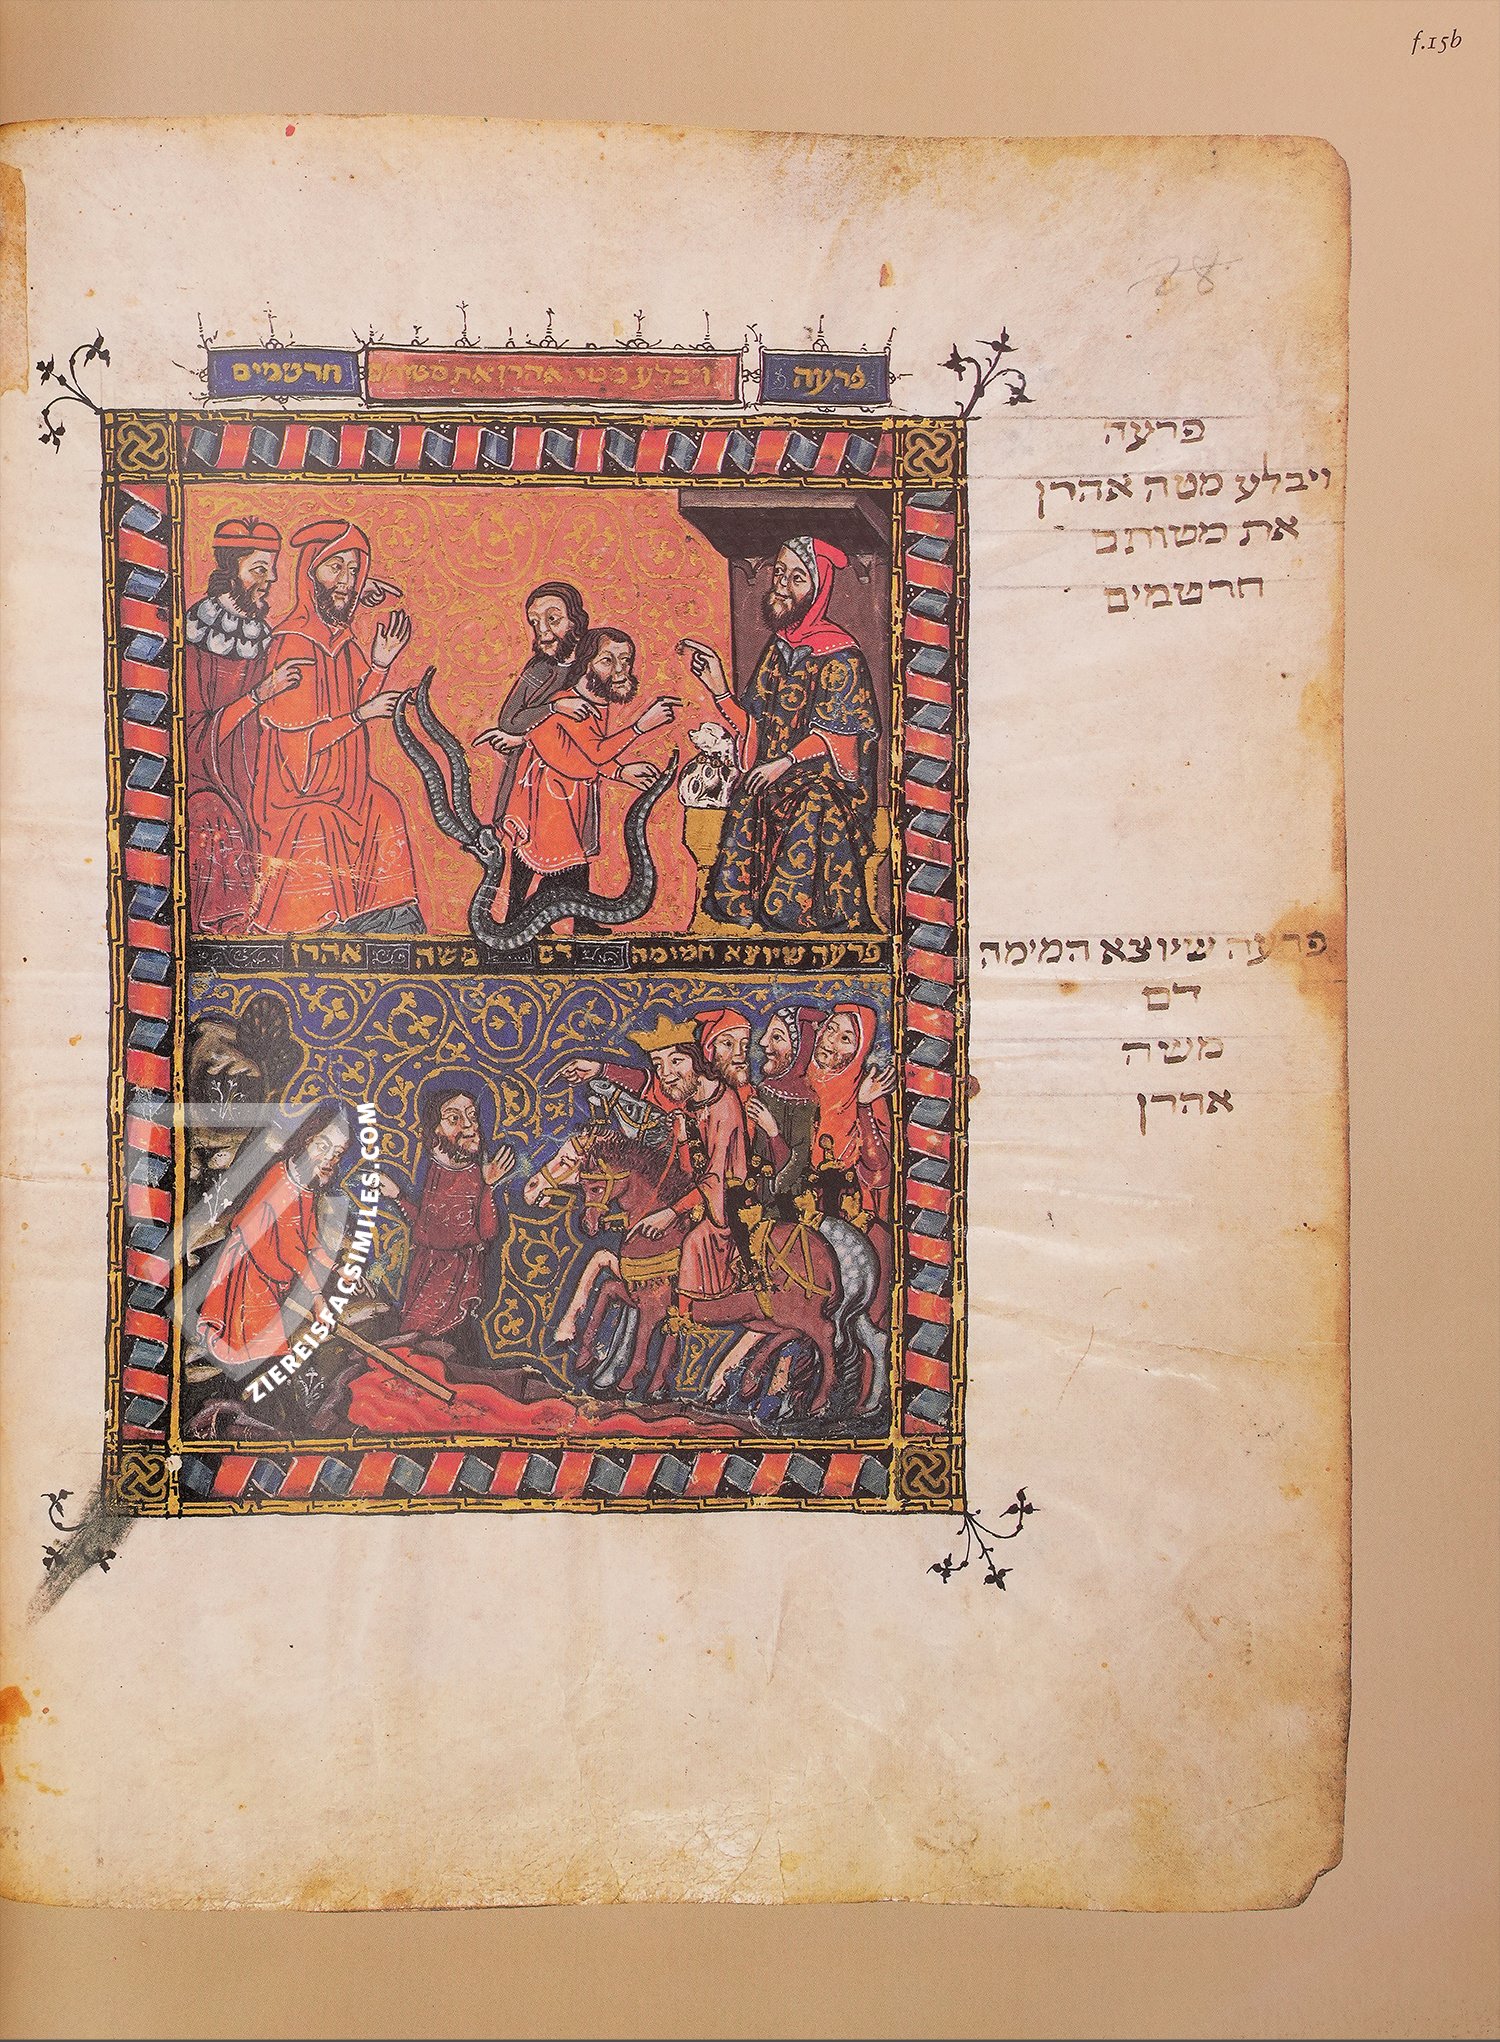 f.15b
28
פרעה ויבלע מטה אהרן את מטותם חרטמים
פרעה
ויבלע מטה אהרן
את מטותם
חרטמים
פרעה שיוצא המימה דם משה אהרן
פרעה שיוצא המימה
דם
משה
אהרן
ZIEREISFACSIMILES.COM